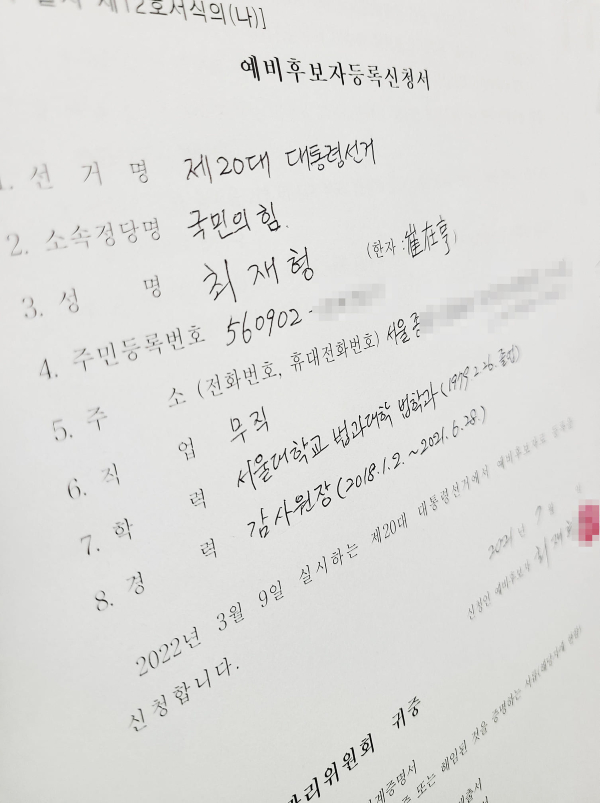 제12호서식의(나)]
예비후보자등록신청서
1. 선 거 명 제20대 대통령선거
2. 소속정당명 국민의힘.
3. 성 명 최재형 (한자 : 崔在亨)
4. 주민등록번호 560902-
5. 주 소 (전화번호, 휴대전화번호) 서울 종
6. 직 업 무직
7. 학 력 서울대학교 법과대학 법학과 (1979.2.26. 졸업)
8. 경 력 감사원장 (2018.1.2. ~ 2021.6.28.)
2022년 3월 9일 실시하는 제20대 대통령선거에서 예비후보자로 등록을
신청합니다.
2021년 7월
신청인 예비후보자 최재형
관리위원회 귀중
계증명서
또는 해임된 것을 증명하는 서류(해당자에 한함)
제출서